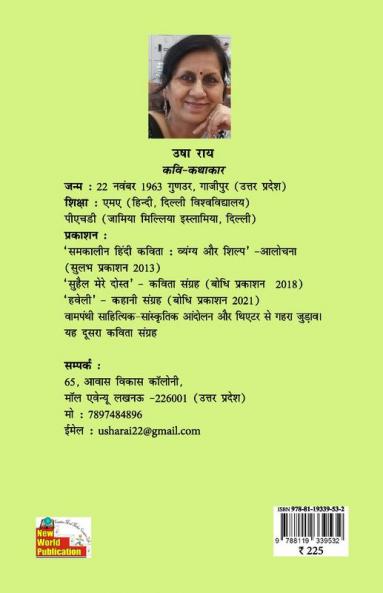 उषा राय
कवि-कथाकार
जन्म : 22 नवंबर 1963 गुणउर, गाजीपुर (उत्तर प्रदेश)
शिक्षा : एमए (हिन्दी, दिल्ली विश्वविद्यालय)
पीएचडी (जामिया मिल्लिया इस्लामिया, दिल्ली)
प्रकाशन :
‘समकालीन हिंदी कविता : व्यंग्य और शिल्प’ -आलोचना
(सुलभ प्रकाशन 2013)
‘सुहैल मेरे दोस्त’ - कविता संग्रह (बोधि प्रकाशन 2018)
‘हवेली’ - कहानी संग्रह (बोधि प्रकाशन 2021)
वामपंथी साहित्यिक-सांस्कृतिक आंदोलन और थिएटर से गहरा जुड़ाव।
यह दूसरा कविता संग्रह
सम्पर्क :
65, आवास विकास कॉलोनी,
मॉल एवेन्यू लखनऊ -226001 (उत्तर प्रदेश)
मो : 7897484896
ईमेल : usharai22@gmail.com
New
World
Publication
ISBN 978-81-19339-53-2
9 788119 339532
₹ 225